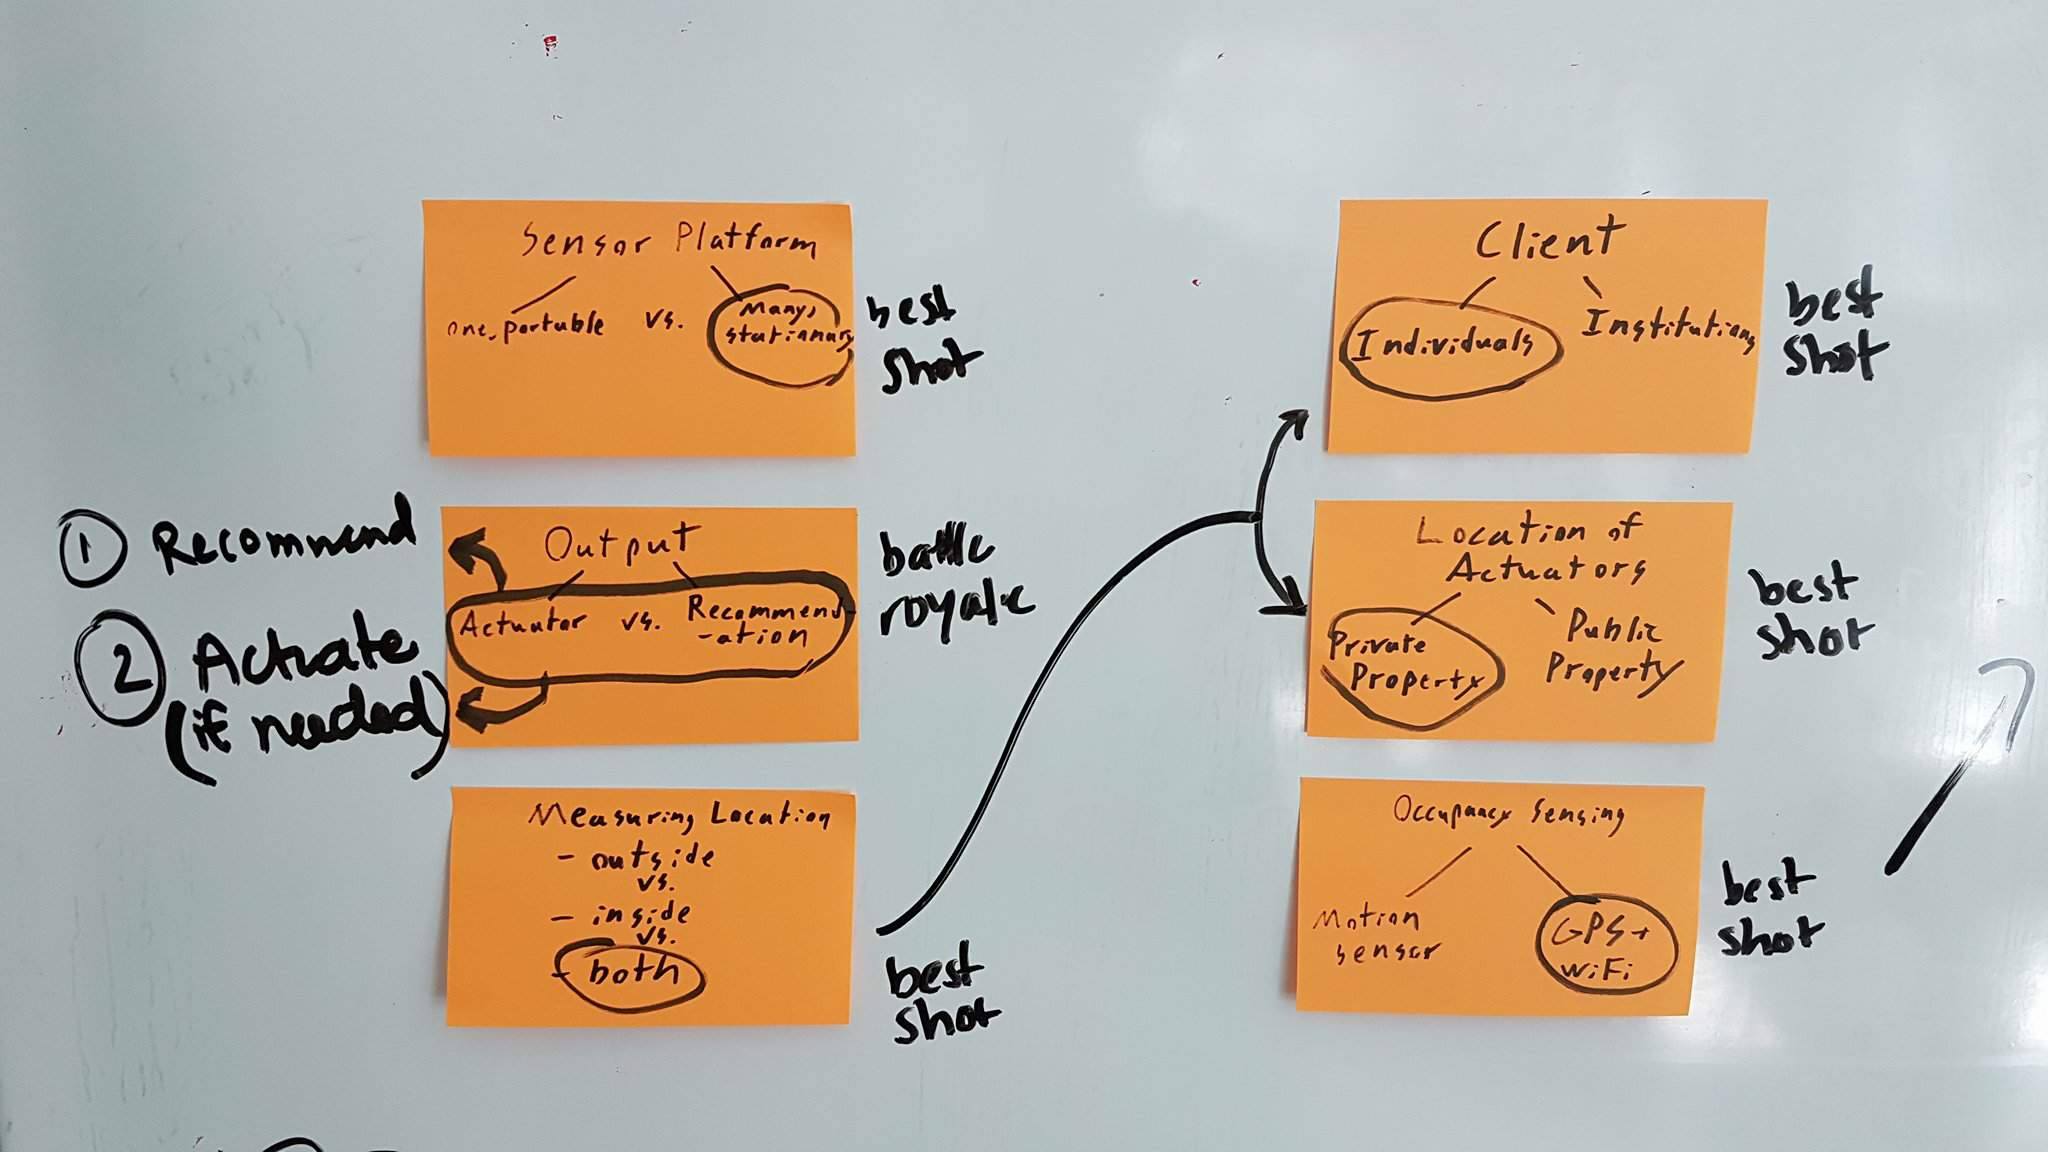 Sensor Platform
one, portable vs. Many,
stationary
best
shot
① Recommend
② Actuate
(if needed)
Output
Actuator vs. Recommend
-ation
battle
royale
Measuring Location
- outside
vs.
- inside
vs.
- both
best
shot
Client
Individuals
Institutions
best
shot
Location of
Actuators
Private
Property
Public
Property
best
shot
Occupancy Sensing
Motion
Sensor
GPS +
WiFi
best
shot